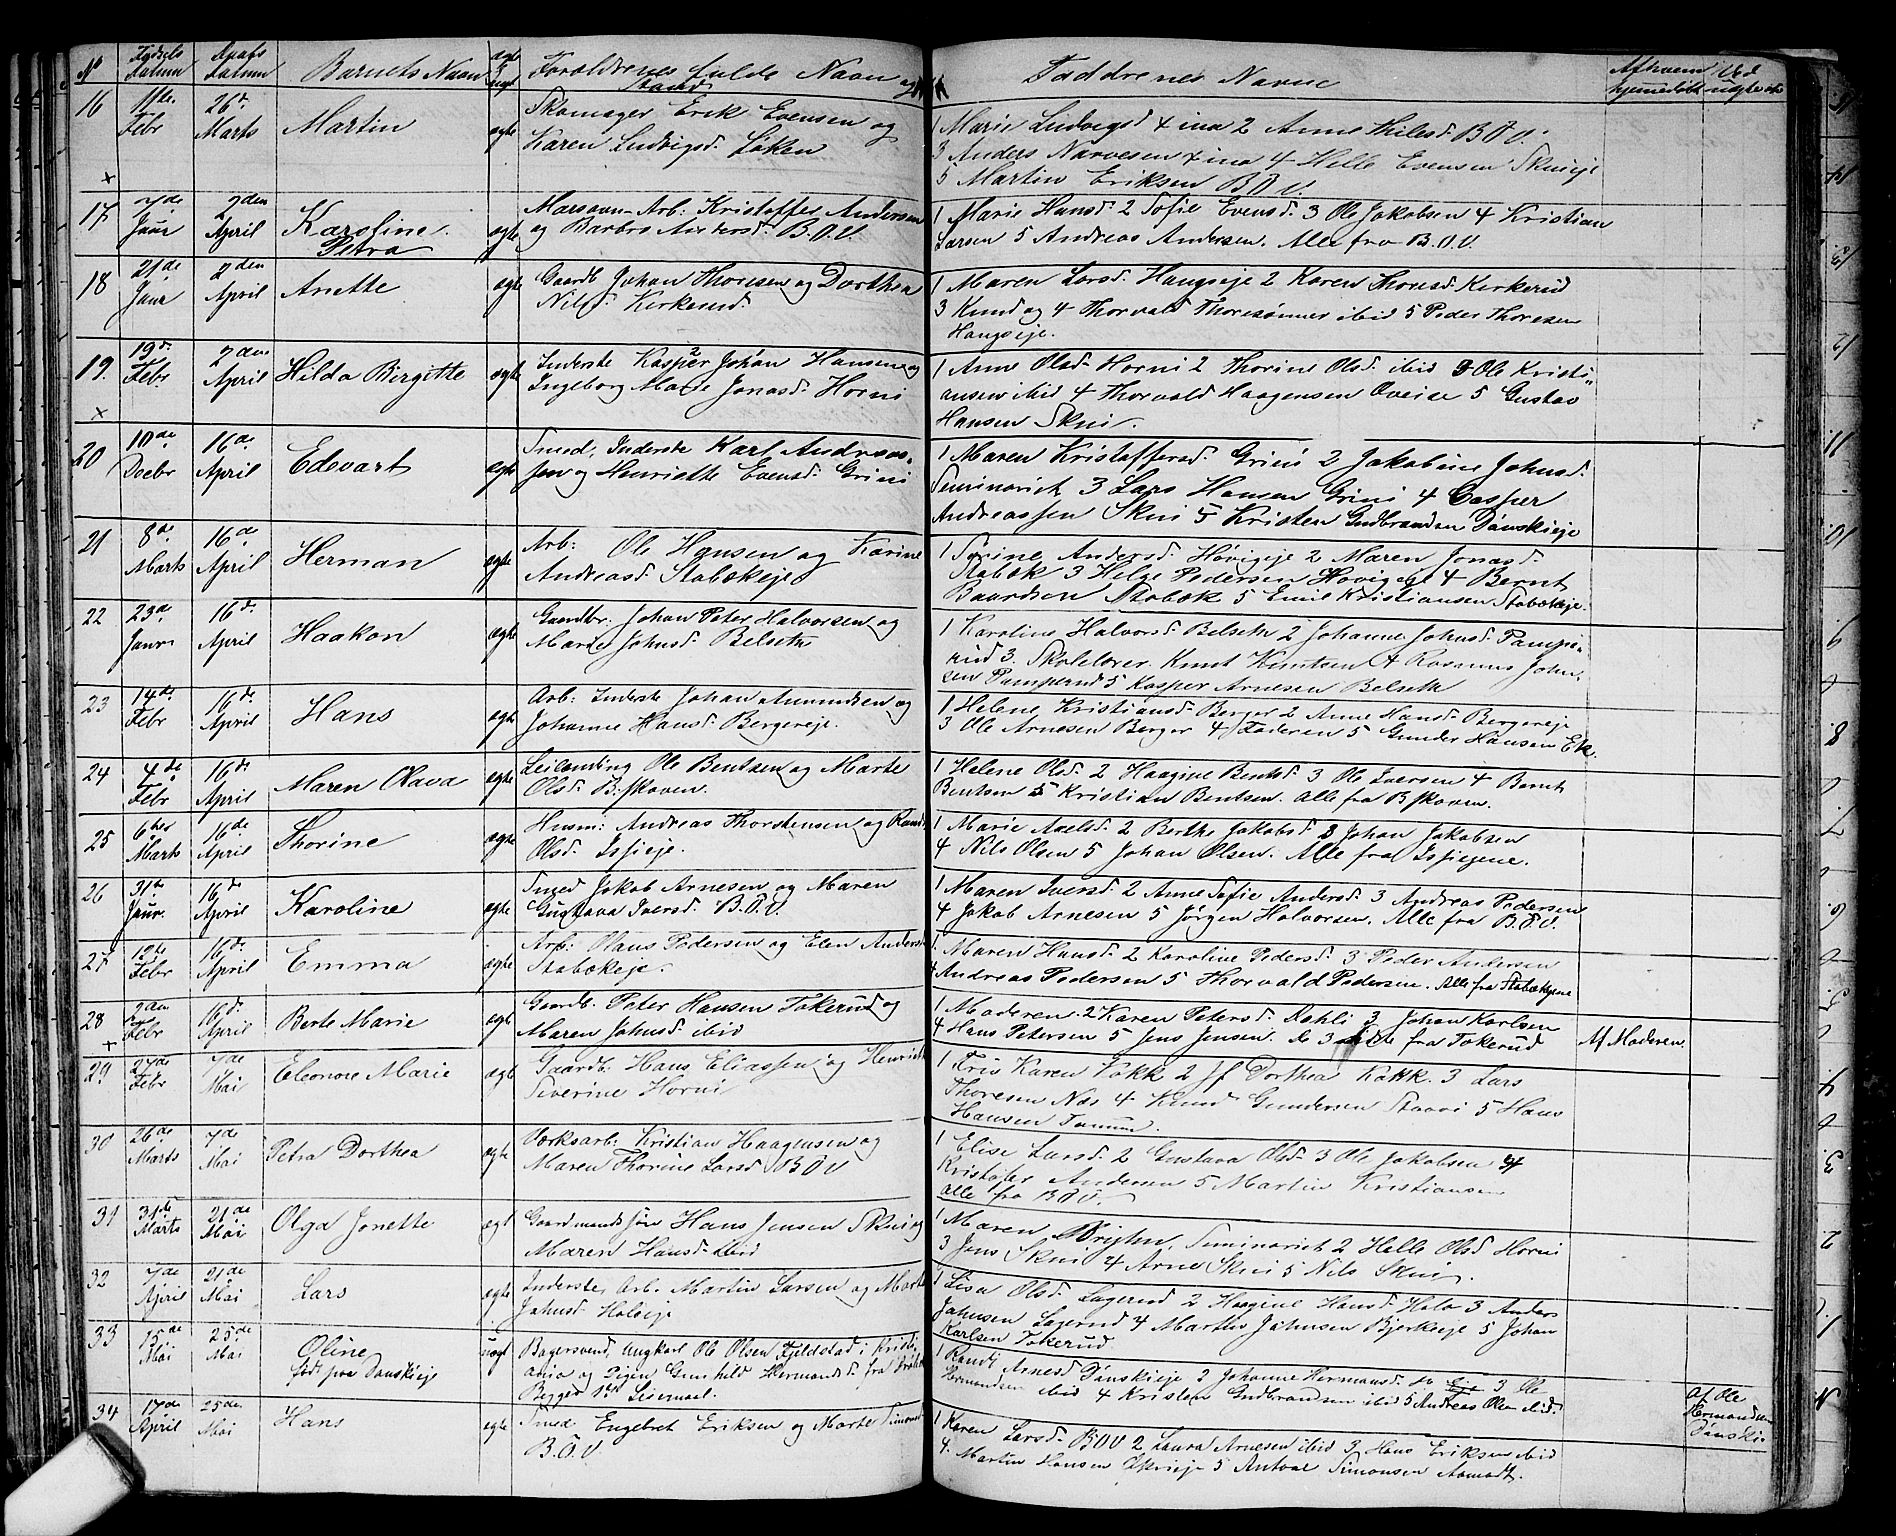 No Fødsels Datum Daabs Datum Barnets Navn ægte el. uægt Forældrenes fulde Navn og Stand Faddrenes Navne Af hvem hjemedøbt Ved uægte
16 11te Febr 26d Marts Martin ægte Skomager Erik Evensen og
Karen Ludvigsd. Løken
1 Marie Ludvigsd 2 Anne Thilesd. B.Ø.V.
3 Anders Narvesen 4 Helle Evensen Skuieje
5 Martin Eriksen B.Ø.V.
17 7de Janr 2den April Karoline Petra ægte Masovn-Arb: Kristoffer Andersen
og Barbro Andersd. B.Ø.V.
1 Marie Hansd. 2 Sofie Evensd. 3 Ole Jakobsen 4 Kristian
Larsen 5 Andreas Andersen. Alle fra B.Ø.V.
18 21de Janr 2den April Anette ægte Gaardb. Johan Thoresen og Dorthea
Nilsd. Kirkerud.
1 Maren Larsd. Haugseje 2 Karen Thoresd. Kirkerud
3 Knud og 4 Thorvald Thoresønner ibid 5 Peder Thoresen
Haugseje.
19. 19d. Febr 2den April Hilda Birgitte ægte Inderste Kasper Johan Hansen og
Ingeborg Marie Jonasd. Horni
1 Anne Olsd. Horni 2 Thorine Olsd. ibid 3 Ole Kristi-
ansen ibid 4 Thorvald Haagensen Øveise 5 Gustav
Hansen Skui.
20 10de Decbr 16de April Edevart ægte Smed, Inderste Karl Andreas-
sen og Henriette Evensd. Grini
1 Maren Kristoffersd. Grini 2 Jakobine Johnsd.
Seminariet 3 Lars Hansen Grini 4 Casper
Andreassen Skui 5 Kristen Gudbrandsen Dønskieje
21 8de Marts 16de April Herman ægte Arb: Ole Hansen og Karine
Andreasd. Stabækeje
1 Sørine Andersd. Høvigeje 2 Maren Jonasd.
Stabæk 3 Helge Pedersen Høvigeje 4 Bernt
Baardsen Stabæk 5 Emil Kristiansen Stabækeje.
22 23d. Janr 16d. April Haakon ægte Gaardbr: Johan Peter Halvorsen og
Marie Johnsd. Belseth
1 Karoline Halvorsd. Belseth 2 Johanne Johnsd. Pampe-
rud 3. Skolelærer Knut Knutsen 4 Rasmus John-
sen Pamperud 5 Kasper Arnesen Belseth
23 14de Febr 16de April Hans ægte Arb: Inderste Johan Amundsen og
Johanne Hansd. Bergereje.
1 Helene Kristiansd. Berger 2 Anne Hansd. Bergereje
3 Ole Arnesen Berger 4 Faderen 5 Gunder Hansen Ek.
24 4de Febr 16de April Maren Olava ægte Leilænding Ole Bentsen og Marte
Olsd. B.skoven.
1 Helene Olsd. 2 Haagine Bentsd. 3 Ole Iversen 4 Bernt
Bentsen 5 Kristian Bentsen. Alle fra B.skoven.
25 6te Marts 16de April Thorine ægte Husm: Andreas Thorstensen og Randi
Olsd. Isieje.
1 Marie Axelsd. 2 Berthe Jakobsd. 3 Johan Jakobsen
4 Nils Olsen 5 Johan Olsen. Alle fra Isiejene.
26 31te Janr. 16de April Karoline ægte Smed Jakob Arnesen og Maren
Gustava Iversd. B.Ø.V.
1 Maren Iversd. 2 Anne Sofie Andersd. 3 Andreas Pedersen
4 Jakob Arnesen 5 Jørgen Halvorsen. Alle fra B.Ø.V.
27 12te Febr 16de April Emma ægte Arb: Olaus Pedersen og Elen Andersd.
Stabækeje.
1 Maren Hansd. 2 Karoline Pedersd. 3 Peder Andersen
4 Andreas Pedersen 5 Thorvald Pedersen. Alle fra Stabækejene
28 2den Febr 16d. April Berte Marie ægte Gaardb. Peter Hansen Tokerud og
Maren Johnsd. ibid
1 Moderen. 2 Karen Petersd. Dahli 3 Johan Karlsen
4 Hans Petersen 5 Jens Jensen. De 3 sidste fra Tokerud Af Moderen.
29 27de Febr 7de Mai Eleonore Marie ægte Gaardb: Hans Eliassen og Henriette
Siverine Horni
1 Frk Karen Kokk 2 Jf Dorthea Kokk. 3 Lars
Thoresen Næs 4 Knud Gundersen Staavi 5 Hans
Hansen Tanum.
30 26de Marts 7de Mai Petra Dorthea ægte Værksarb: Kristian Haagensen og
Maren Thorine Larsd. B.Ø.V
1 Elise Larsd. 2 Gustava Olsd. 3 Ole Jakobsen 4
Kristofer Andersen 5 Martin Kristiansen
alle fra B.Ø.V.
31 31te Marts 21de Mai Olga Jonette ægt Gaardmands søn Hans Jensen Skui og
Maren Hansd. ibid
1 Maren Seminariet 2 Helle Olsd Horni
3 Jens Skui 4 Arne Skui 5 Nils Skui.
32 7de April 21de Mai Lars ægte Inderste, Arb. Martin Larsen og Marte
Johnsd. Holoeje
1 Lisa Olsd. Lagerud 2 Haagine Hansd. Holo 3 Anders
Johnsen Lagerud 4 Martin Johnsen Bjerkeeje 5 Johan
Karlsen Tokerud
33 15de Mai 25de Mai Oline født paa Dønskieje uægt Bagersvend, Ungkarl Ole Olsen Fjeldstad i Kristi-
ania og Pigen Gunhild Hermandsd. fra
Begges 1ste Leiermaal.
1 Randi Arnesd Dønskieje 2 Johanne Hermansd. ib 3 Ole
Hermandsen ibid 4 Kristen Gudbrandsen ibid 5 Andreas Olsen ibid. Af Ole
Hermandsen
Dønski.
34 17de April 25de. Mai Hans ægte Smed Engebret Eriksen og Marte Simonsd
B.Ø.V
1 Karen Larsd. B.Ø.V 2 Laura Arnesen ibid 3 Hans Eriksen ibid
4. Martin Hansen 5 Antoar Simonsen Aamodt.